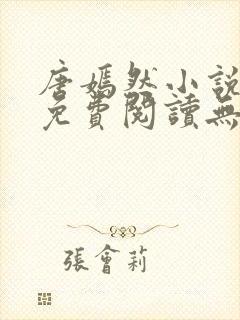 唐嫣然小說
免費閱讀無
張會莉